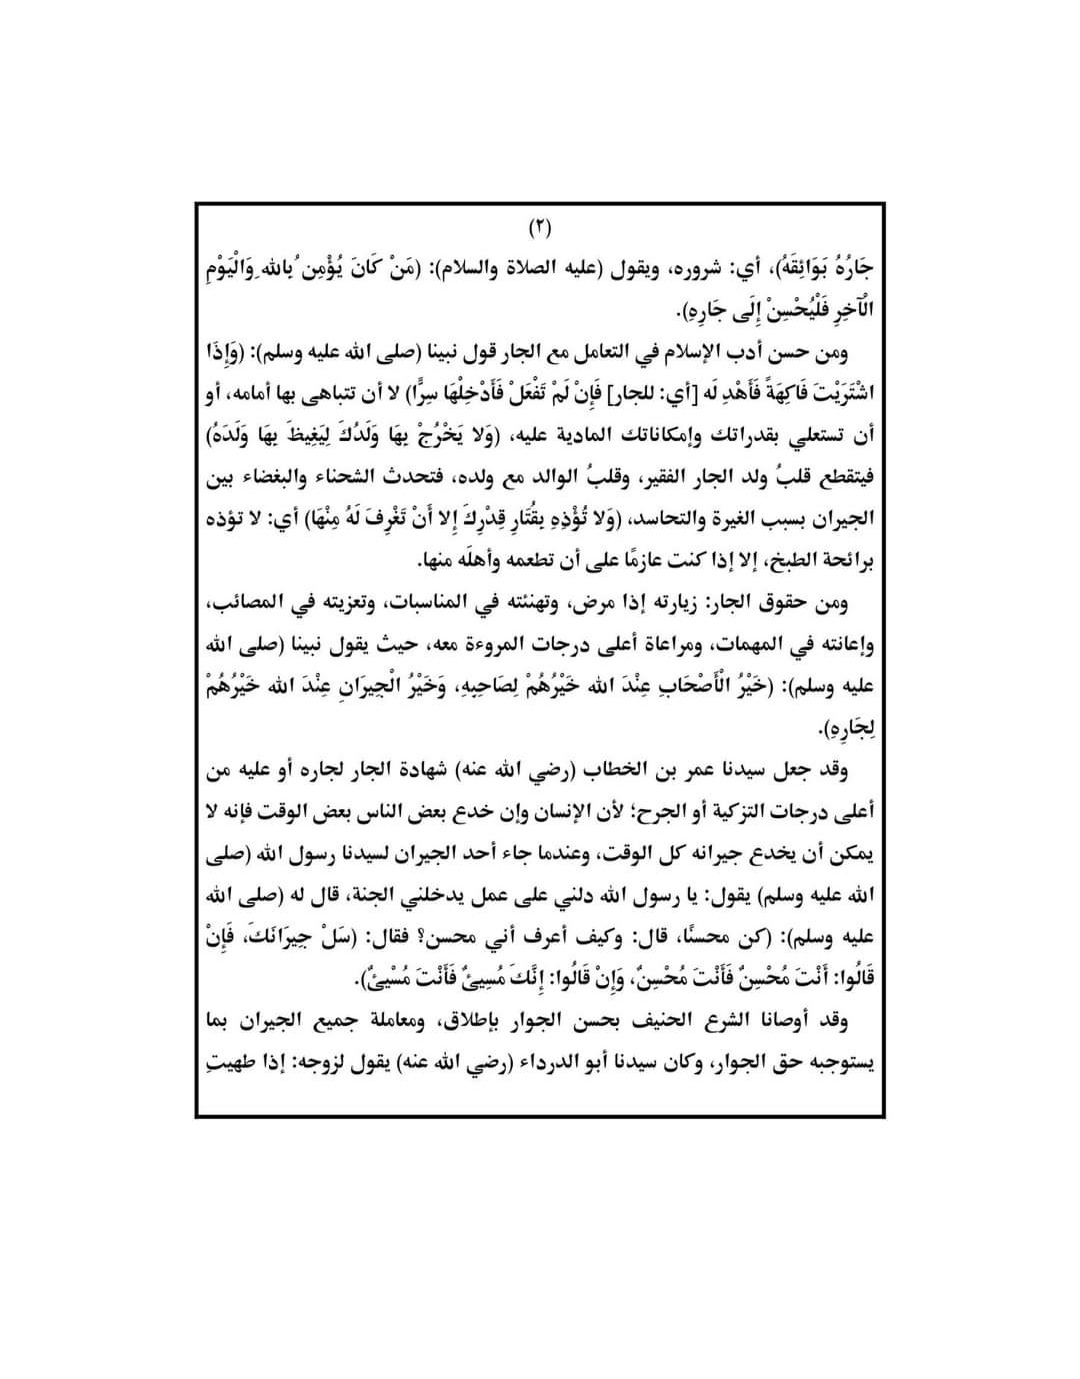 (٢)
جَارُهُ بَوَائِقَهُ)، أي: شروره، ويقول (عليه الصلاة والسلام): (مَنْ كَانَ يُؤْمِن ُبِالله ِوَالْيَوْمِ
الْآخِرِ فَلْيُحْسِنْ إِلَى جَارِهِ).
ومن حسن أدب الإسلام في التعامل مع الجار قول نبينا (صلى الله عليه وسلم): (وَإِذَا
اشْتَرَيْتَ فَاكِهَةً فَأَهْدِ لَه [أي: للجار] فَإِنْ لَمْ تَفْعَلْ فَأَدْخِلْهَا سِرًّا) لا أن تتباهى بها أمامه، أو
أن تستعلي بقدراتك وإمكاناتك المادية عليه، (وَلا يَخْرُجْ بِهَا وَلَدُكَ لِيَغِيظَ بِهَا وَلَدَهُ)
فيتقطع قلبُ ولد الجار الفقير، وقلبُ الوالد مع ولده، فتحدث الشحناء والبغضاء بين
الجيران بسبب الغيرة والتحاسد، (وَلا تُؤْذِهِ بِقُتَارِ قِدْرِكَ إِلا أَنْ تَغْرِفَ لَهُ مِنْهَا) أي: لا تؤذه
برائحة الطبخ، إلا إذا كنت عازمًا على أن تطعمه وأهلَه منها.
ومن حقوق الجار: زيارته إذا مرض، وتهنئته في المناسبات، وتعزيته في المصائب،
وإعانته في المهمات، ومراعاة أعلى درجات المروءة معه، حيث يقول نبينا (صلى الله
عليه وسلم): (خَيْرُ الْأَصْحَابِ عِنْدَ الله خَيْرُهُمْ لِصَاحِبِهِ، وَخَيْرُ الْجِيرَانِ عِنْدَ الله خَيْرُهُمْ
لِجَارِهِ).
وقد جعل سيدنا عمر بن الخطاب (رضي الله عنه) شهادة الجار لجاره أو عليه من
أعلى درجات التزكية أو الجرح؛ لأن الإنسان وإن خدع بعض الناس بعض الوقت فإنه لا
يمكن أن يخدع جيرانه كل الوقت، وعندما جاء أحد الجيران لسيدنا رسول الله (صلى
الله عليه وسلم) يقول: يا رسول الله دلني على عمل يدخلني الجنة، قال له (صلى الله
عليه وسلم): (كن محسنًا، قال: وكيف أعرف أني محسن؟ فقال: (سَلْ جِيرَانَكَ، فَإِنْ
قَالُوا: أَنْتَ مُحْسِنٌ فَأَنْتَ مُحْسِنٌ، وَإِنْ قَالُوا: إِنَّكَ مُسِيئٌ فَأَنْتَ مُسْيئٌ).
وقد أوصانا الشرع الحنيف بحسن الجوار بإطلاق، ومعاملة جميع الجيران بما
يستوجبه حق الجوار، وكان سيدنا أبو الدرداء (رضي الله عنه) يقول لزوجه: إذا طهيتِ